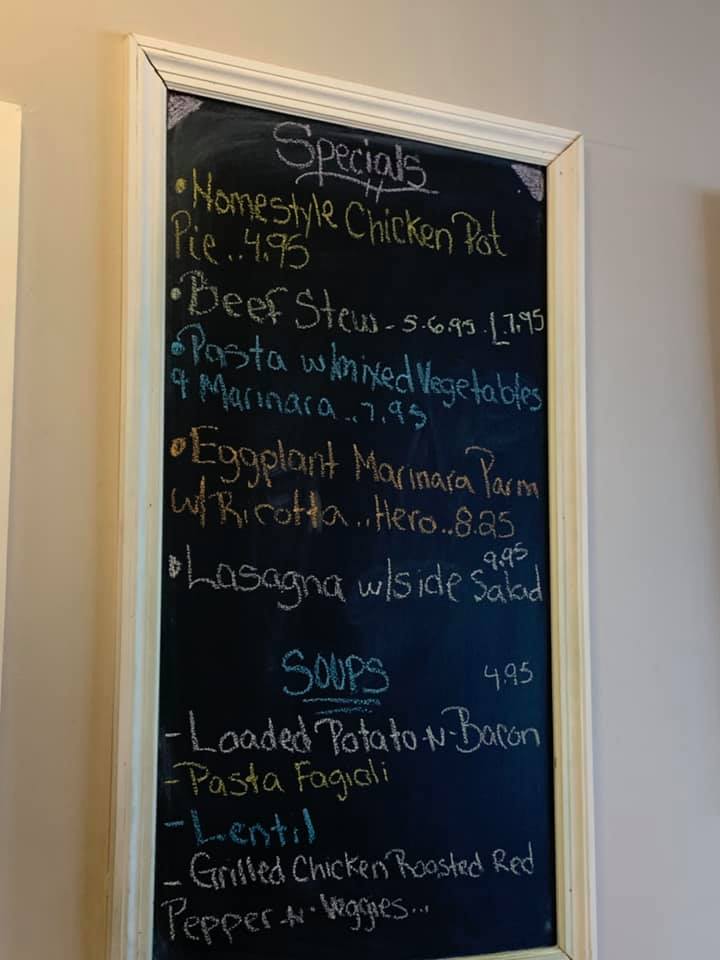 Specials
•Homestyle Chicken Pot
Pie..4.95
•Beef Stew - S-6.95. L7.95
•Pasta w/mixed Vegetables
& Marinara..7.95
•Eggplant Marinara Parm
w/Ricotta...Hero..8.25
9.95
•Lasagna w/side Salad
SOUPS 4.95
-Loaded Potato-N-Bacon
-Pasta Fagioli
-Lentil
- Grilled Chicken Roasted Red
Pepper-N-Veggies...